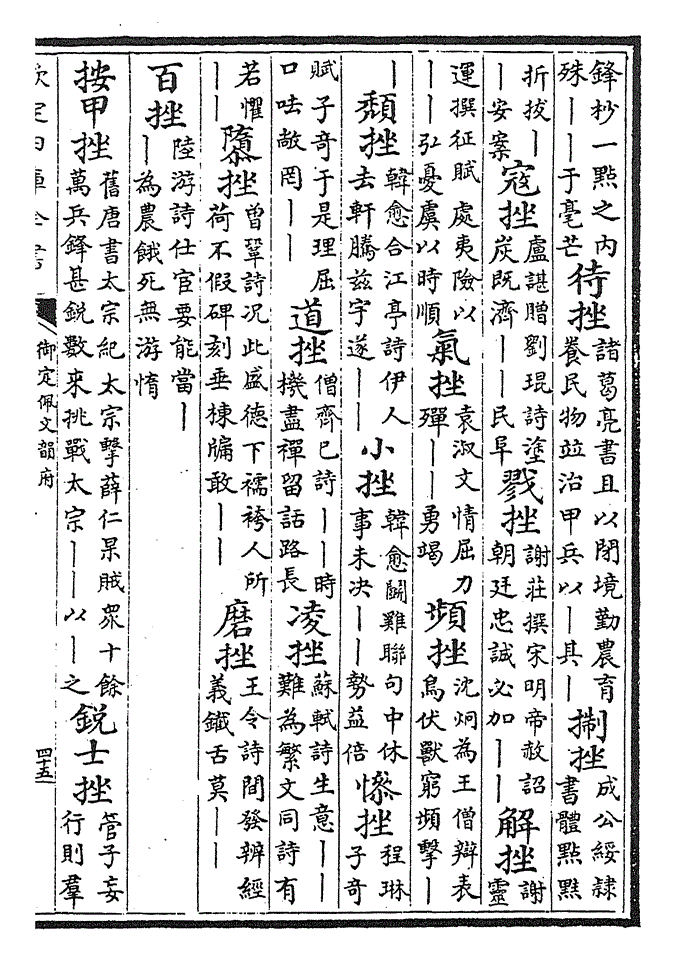 鋒杪一點之内殊――于毫芒待挫諸葛亮書且以閉境勤農育養民物竝治甲兵以――其―掣挫成公綏隷書體點㸃
折拔―――安案寇挫盧諶贈劉琨詩塗炭既濟――民阜戮挫謝莊撰宋明帝赦詔朝廷忠誠必加――解挫謝靈
運撰征賦處夷險以――弘憂虞以時順氣挫袁淑文情屈力殫――勇竭頻挫沈炯為王僧辯表鳥伏獸窮頻擊―
―頹挫韓愈合江亭詩伊人去軒騰兹宇遂――小挫韓愈鬭雞聯句中休事未决――勢益倍慘挫程琳子奇
賦子奇于是理屈口呿敵罔――道挫僧齊已詩――時機盡禪留話路長凌挫蘇軾詩生意――難為繁文同詩有
若懼――隳挫曾鞏詩况此盛德下襦袴人所荷不假碑刻垂棟牖敢――磨挫王令詩間發辨經義鐵舌莫――
百挫陸游詩仕宦要能當――為農餓死無游惰
按甲挫舊唐書太宗紀太宗擊薛仁杲賊衆十餘萬兵鋒甚鋭數來挑戰太宗――以――之鋭士挫管子妄行則羣
欽定四庫全書
御定佩文韻府
四十五